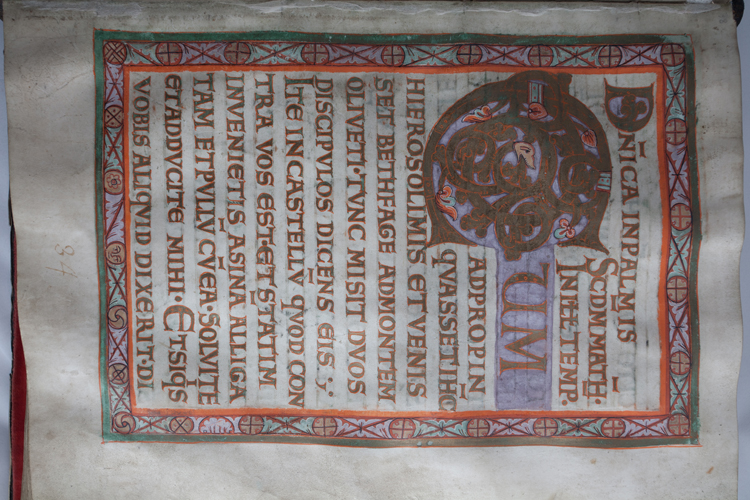 DNICA IN PALMIS
SCDM MATH·
IN ILL TEMP·
CUM
ADPROPIN
QVASSET IHC
HIEROSOLIMIS ET VENIS
SET BETHFAGE ADMONTEM
OLIVETI· TVNC MISIT DVOS
DISCIPVLOS DICENS EIS
ITE IN CASTELLV̄ QVOD CON
TRA VOS EST· ET STATIM
INVENIETIS ASINĀ ALLIGA
TAM ET PVLV̄ CV̄ EA· SOLVITE
ET ADDVCITE MIHI· ET SI QS
VOBIS ALIQVID DIXERIT· DI